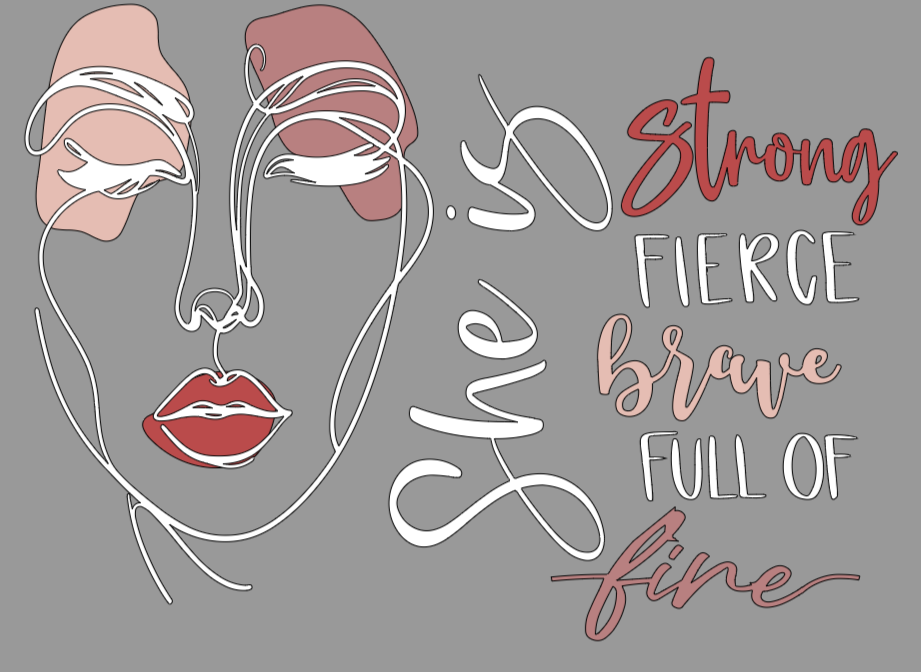 She is
Strong
FIERCE
brave
FULL OF
fine